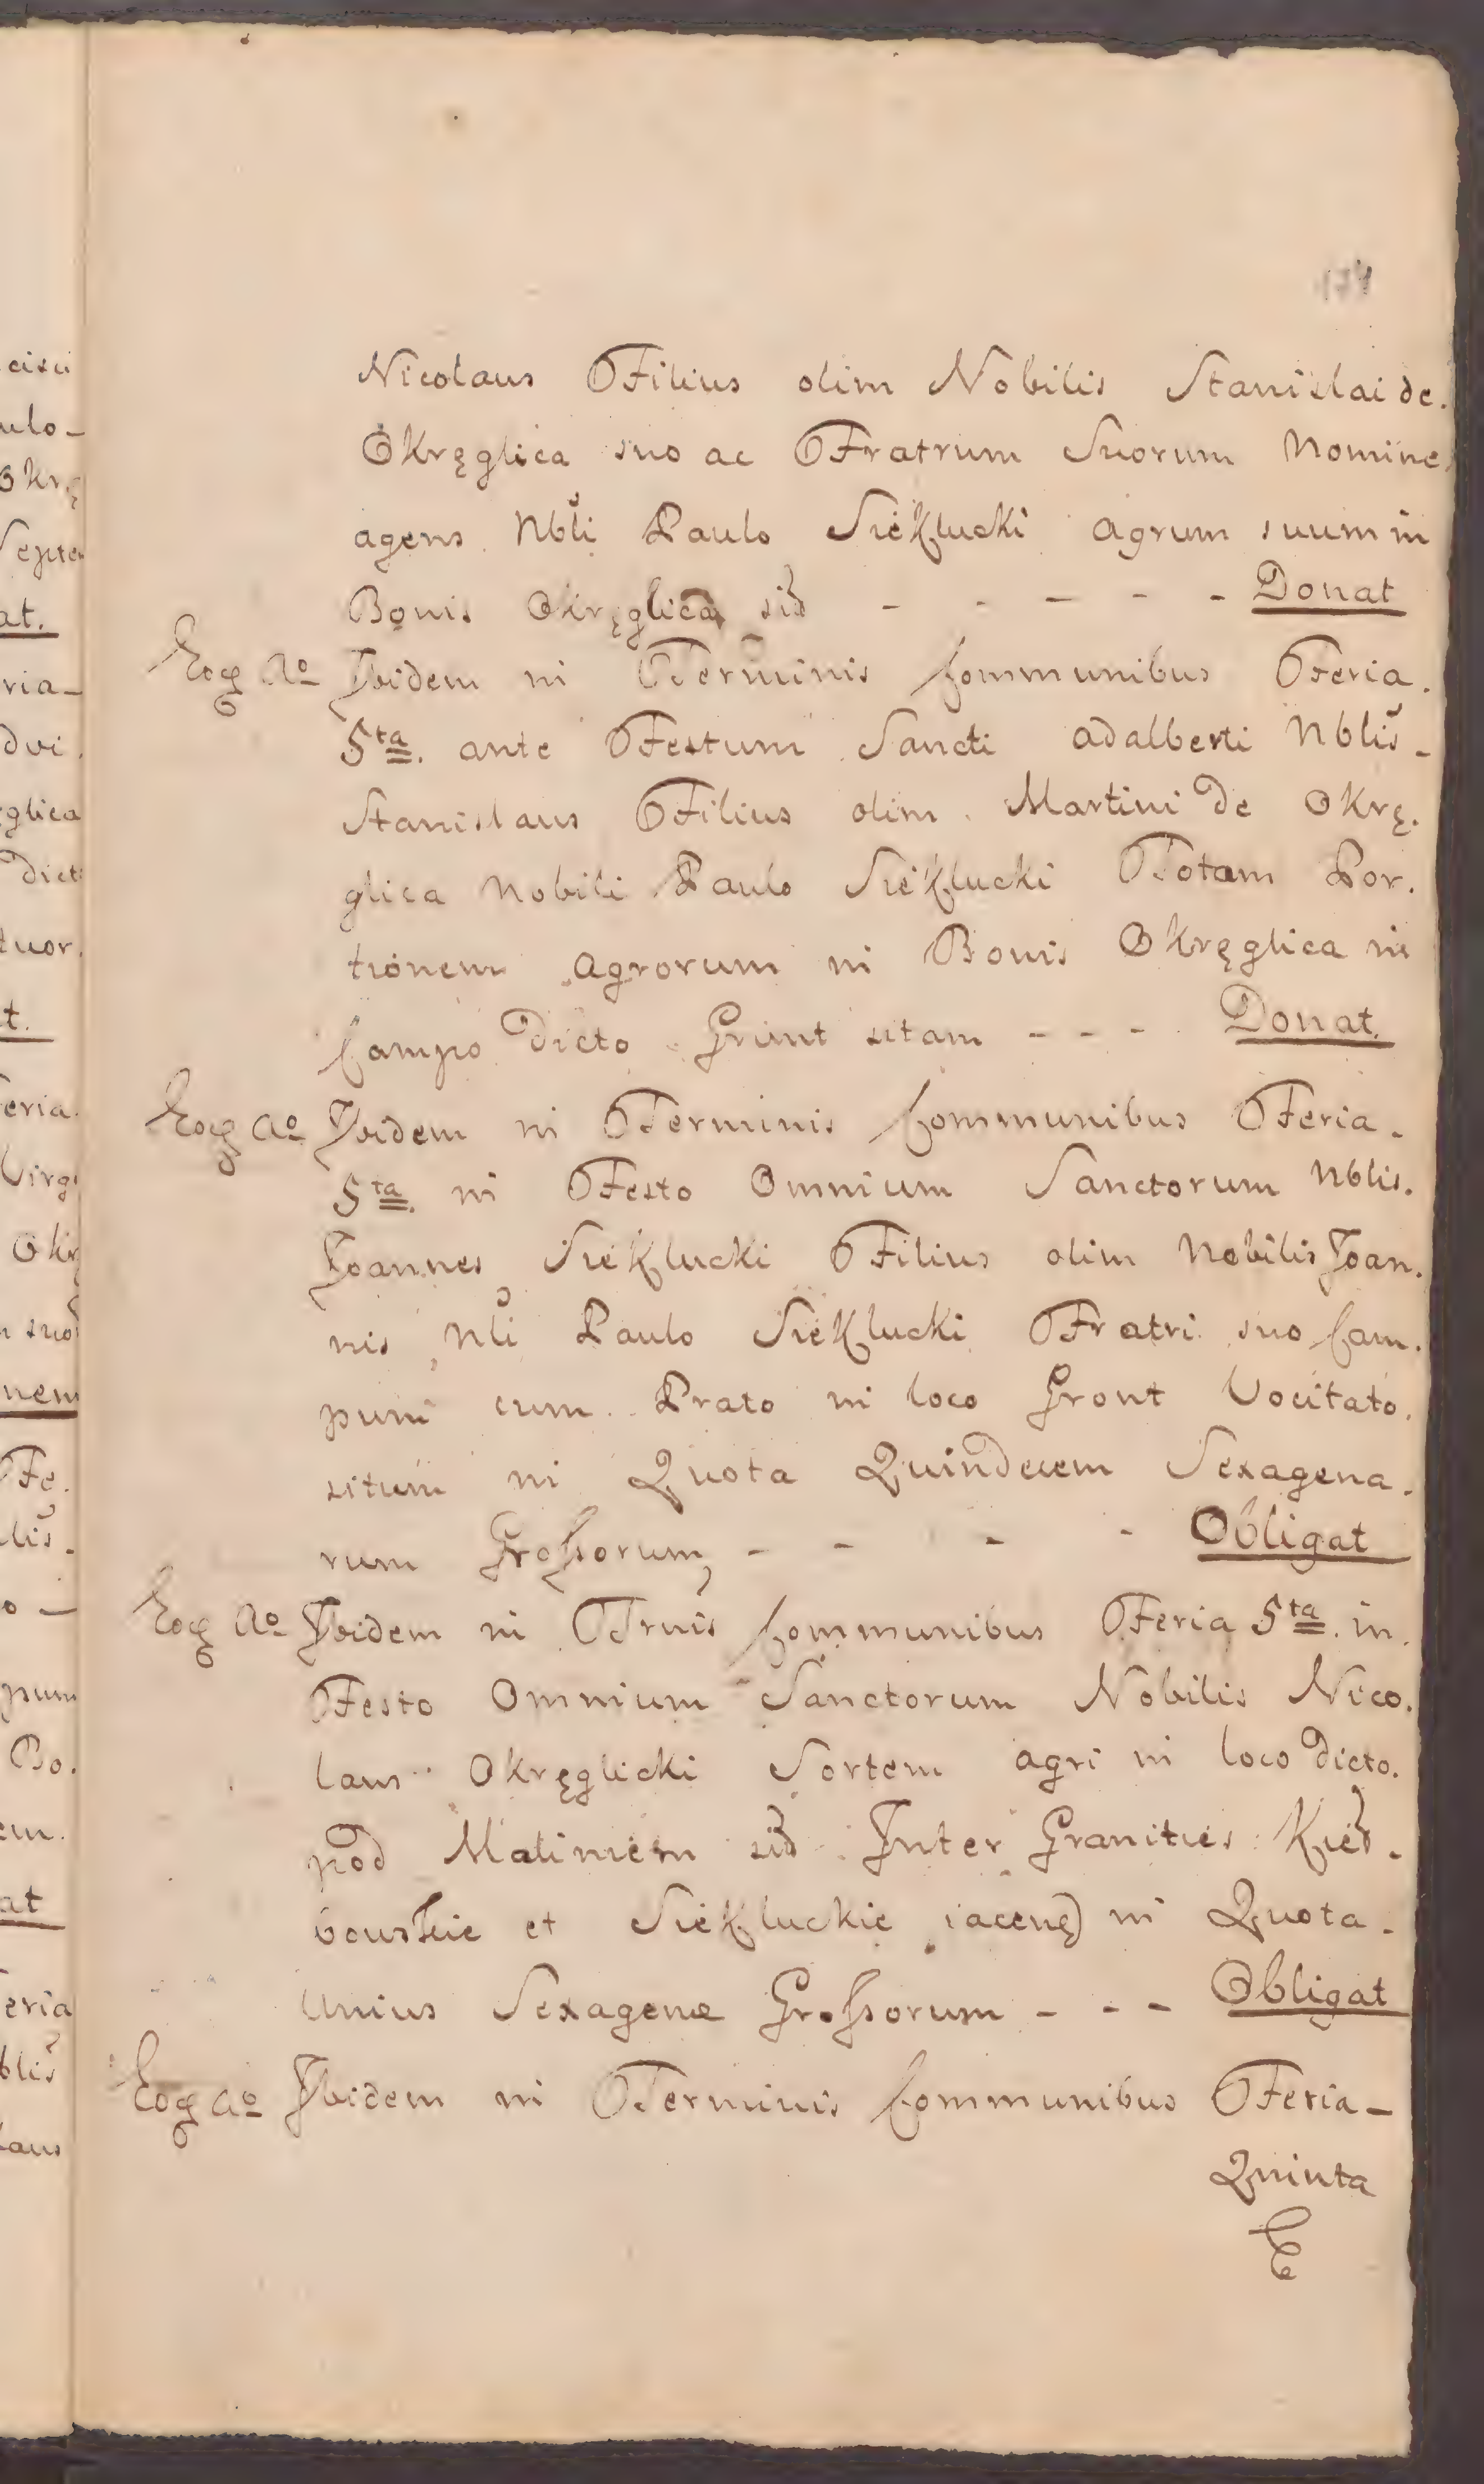 174
Nicolaus Filius olim Nobilis Stanislai de.
Okręglica suo ac Fratrum Suorum Nomine
agens Nbli Paulo Siekłucki Agrum suum in
Bonis Okręglica sid - - - - - Donat
Eoq Ao Ibidem in Terminis Communibus Feria.
5ta. ante Festum Sancti Adalberti Nblis -
Stanislaus Filius olim Martini de Okrę.
glica Nobili Paulo Siekłucki Totam Por.
tionem Agrorum in Bonis Okręglica in
Campo Dicto Grunt sitam - - - Donat.
Eoq Ao Ibidem in Terminis Communibus Feria.
5ta. in Festo Omnium Sanctorum Nblis.
Joannes Siekłucki Filius olim Nobilis Joan.
nis Nli Paulo Siekłucki Fratri suo Cam.
pum cum Prato in loco Gront Vocitato.
situm in Quota Quindecem Sexagena.
rum Grossorum, - - - - Obligat
Eoq Ao Ibidem in Trnis Communibus Feria 5ta. in.
Festo Omnium Sanctorum Nobilis Nico.
laus Okręglicki Sortem agri in loco Dicto.
pod Maliniem sid Inter Granities Kied.
bowskie et Siekłuckie iacen) in Quota.
Unius Sexagenæ Grossorum - - - Obligat
Eoq Ao Ibidem in Terminis Communibus Feria -
Quinta